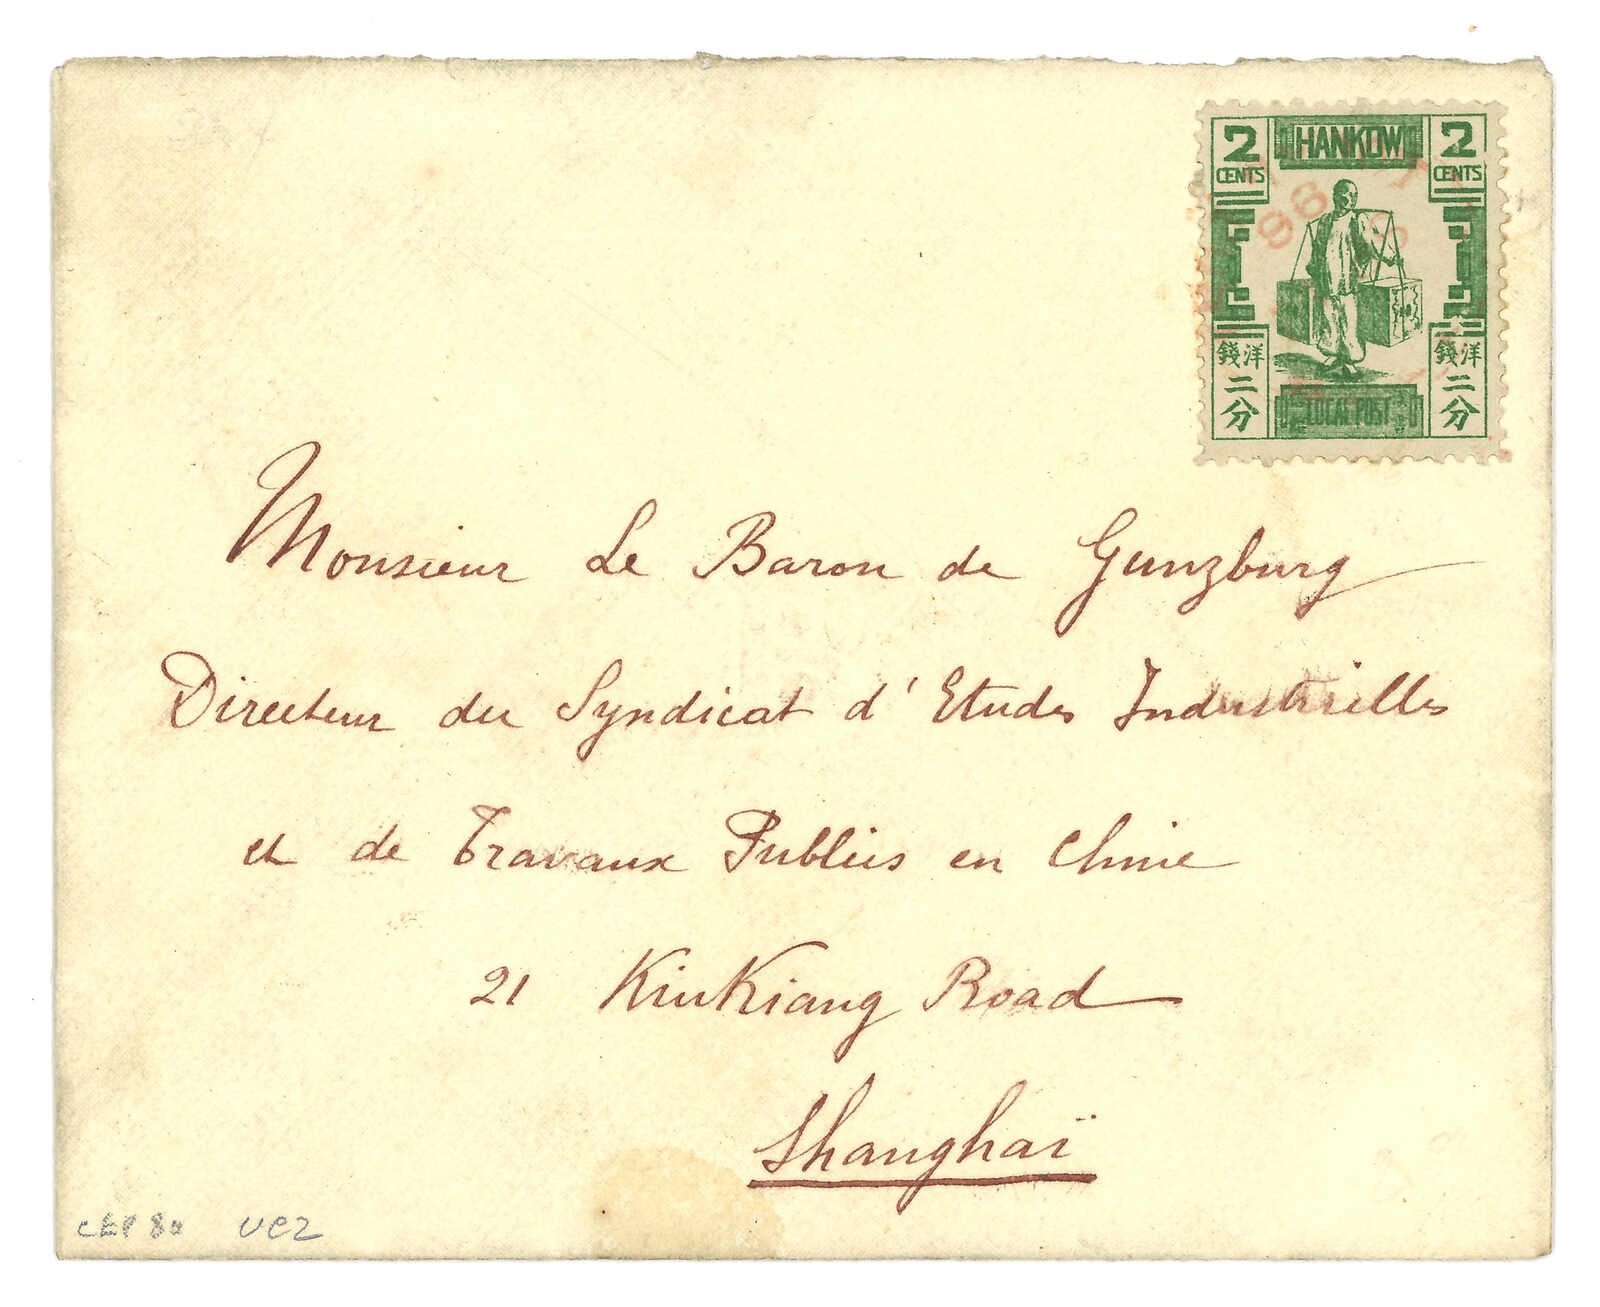 2 HANKOW 2
CENTS CENTS
96
錢洋 錢洋
二 二
分 LOCAL POST 分
Monsieur Le Baron de Gunzburg
Directeur du Syndicat d'Etudes Industrielles
et de Travaux Publics en Chine
21 KinKiang Road
Shanghaï